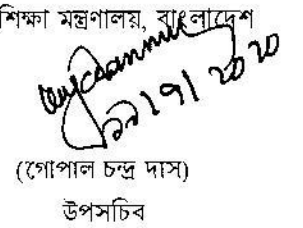 শিক্ষা মন্ত্রণালয়, বাংলাদেশ
(গোপাল চন্দ্র দাস)
উপসচিব